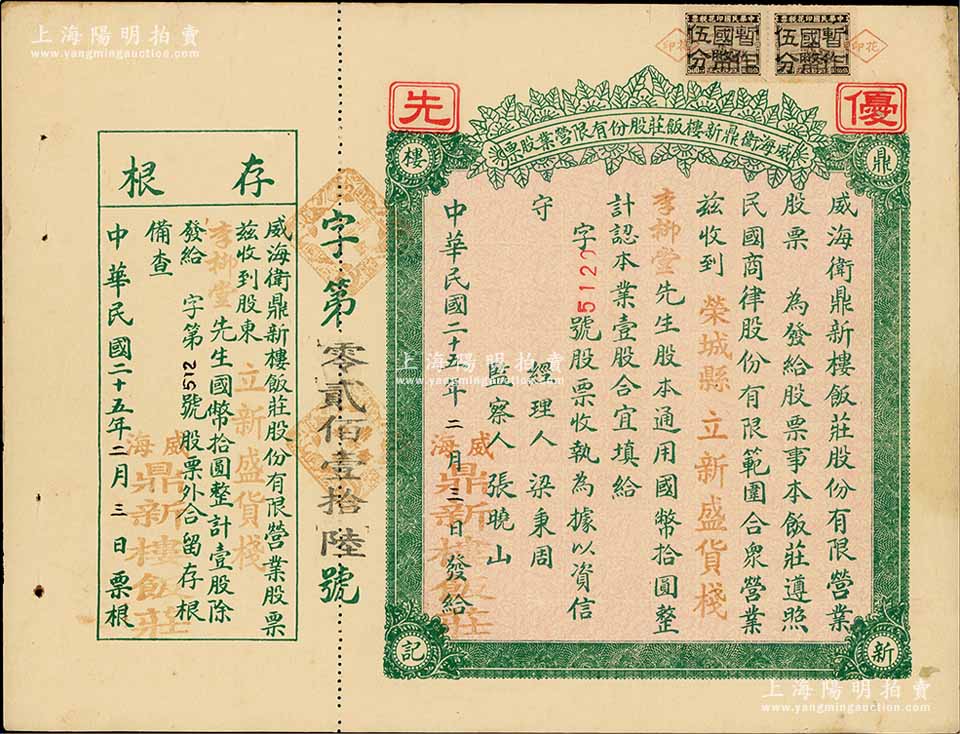 上海陽明拍賣
www.yangmingauction.com
中華民國印花稅票
暫作國幣伍分
中華民國印花稅票
暫作國幣伍分
印花
印花
優先
威海衛鼎新樓飯莊股份有限營業股票
鼎
新
樓
記
威海衛鼎新樓飯莊股份有限營業
股票 為發給股票事本飯莊遵照
民國商律股份有限範圍合衆營業
茲收到 榮城縣 立新盛貨棧
李柳堂先生股本通用國幣拾圓整
計認本業壹股合宜填給
字 512 號股票收執為據以資信
守
經理人 梁秉周
監察人 張曉山
中華民國二十五年 二 月 三 日發給
威海
鼎新樓飯莊
字第 零貳佰壹拾陸 號
存根
威海衛鼎新樓飯莊股份有限營業股票
茲收到股東 立新盛貨棧
李柳堂 先生國幣拾圓整計壹股除
發給 字第 512 號股票外合留存根
備查
中華民國二十五年二月 三 日票根
威海
鼎新樓飯莊
上海陽明拍賣
www.yangmingauction.com
上海陽明拍賣
www.yangmingauction.com